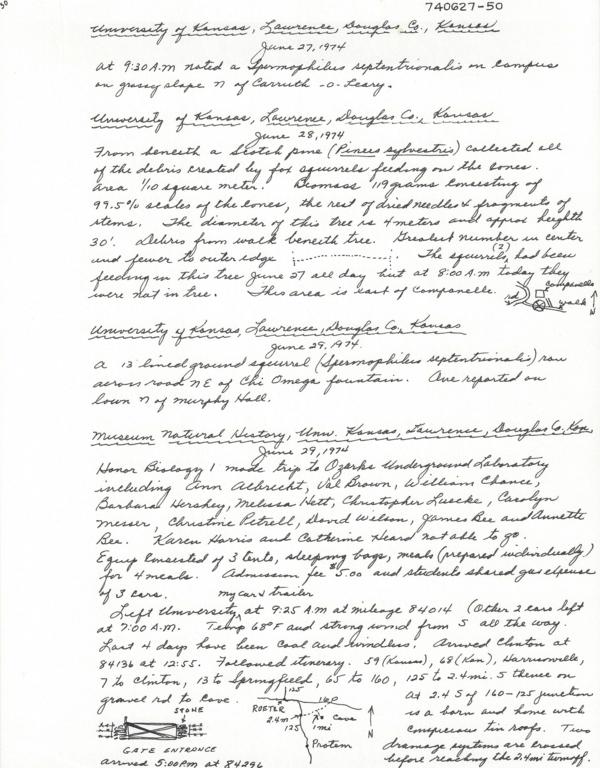 740627-50
University of Kansas, Lawrence, Douglas Co., Kansas
June 27, 1974
At 9:30 A.M noted a Spermophilus septentrionalis on campus
on grassy slope N of Carruth-O-Leary.
University of Kansas, Lawrence, Douglas Co., Kansas
June 28, 1974
From beneath a Scotch pine (Pinus sylvestris) collected all
of the debris created by fox squirrels feeding on the cones.
Area 1/10 square meter. Biomass 119 grams consisting of
99.5% scales of the cones, the rest of dried needles & fragments of
stems. The diameter of this tree is 4 meters and approx heighth
30'. Debris from walk beneath tree. Greatest number in center
and fewer to outer edge. The squirrels (2) had been
feeding in this tree June 27 all day but at 8:00 A.M today they
were not in tree. This area is east of Companelle.
companelle
rd
walk
N
University of Kansas, Lawrence, Douglas Co, Kansas
June 29, 1974.
A 13 lined ground squirrel (Spermophilus septentrionalis) ran
across road NE of Chi Omega fountain. One reported on
lawn N of Murphy Hall.
Museum Natural History, Univ. Kansas, Lawrence, Douglas Co. Kans,
June 29, 1974
Honor Biology 1 made trip to Ozarks Underground Laboratory
including Ann Albrecht, Val Brown, William Chance,
Barbara Hershey, Melissa Hett, Christopher Luecke, Carolyn
Messer, Christine Petrell, David Wilson, James Bee and Annette
Bee. Karen Harris and Catherine Heard not able to go.
Equip consisted of 3 tents, sleeping bags, meals (prepared individually)
for 4 meals. Admission fee $5.00 and students shared gas expense
of 3 cars. my car & trailer
Left University at 9:25 A.M at mileage 84014 (Other 2 cars left
at 7:00 A.M. Temp 68°F and strong wind from S all the way.
Last 4 days have been cool and windless. Arrived Clinton at
84136 at 12:55. Followed itinerary. 59 (Kansas), 68 (Kan), Harrisonville,
7 to Clinton, 13 to Springfield, 65 to 160, 125 to 2.4 mi. S thence on
gravel rd to cave.
At 2.4 S of 160-125 junction
is a barn and home with
conspicuous tin roofs. Two
drainage systems are crossed
before reaching the 2.4 mi turnoff.
STONE
GATE ENTRANCE
125
160
2.4 m
Cave
1 mi
125
Protem
N
arrived 5:00 P.M at 84296